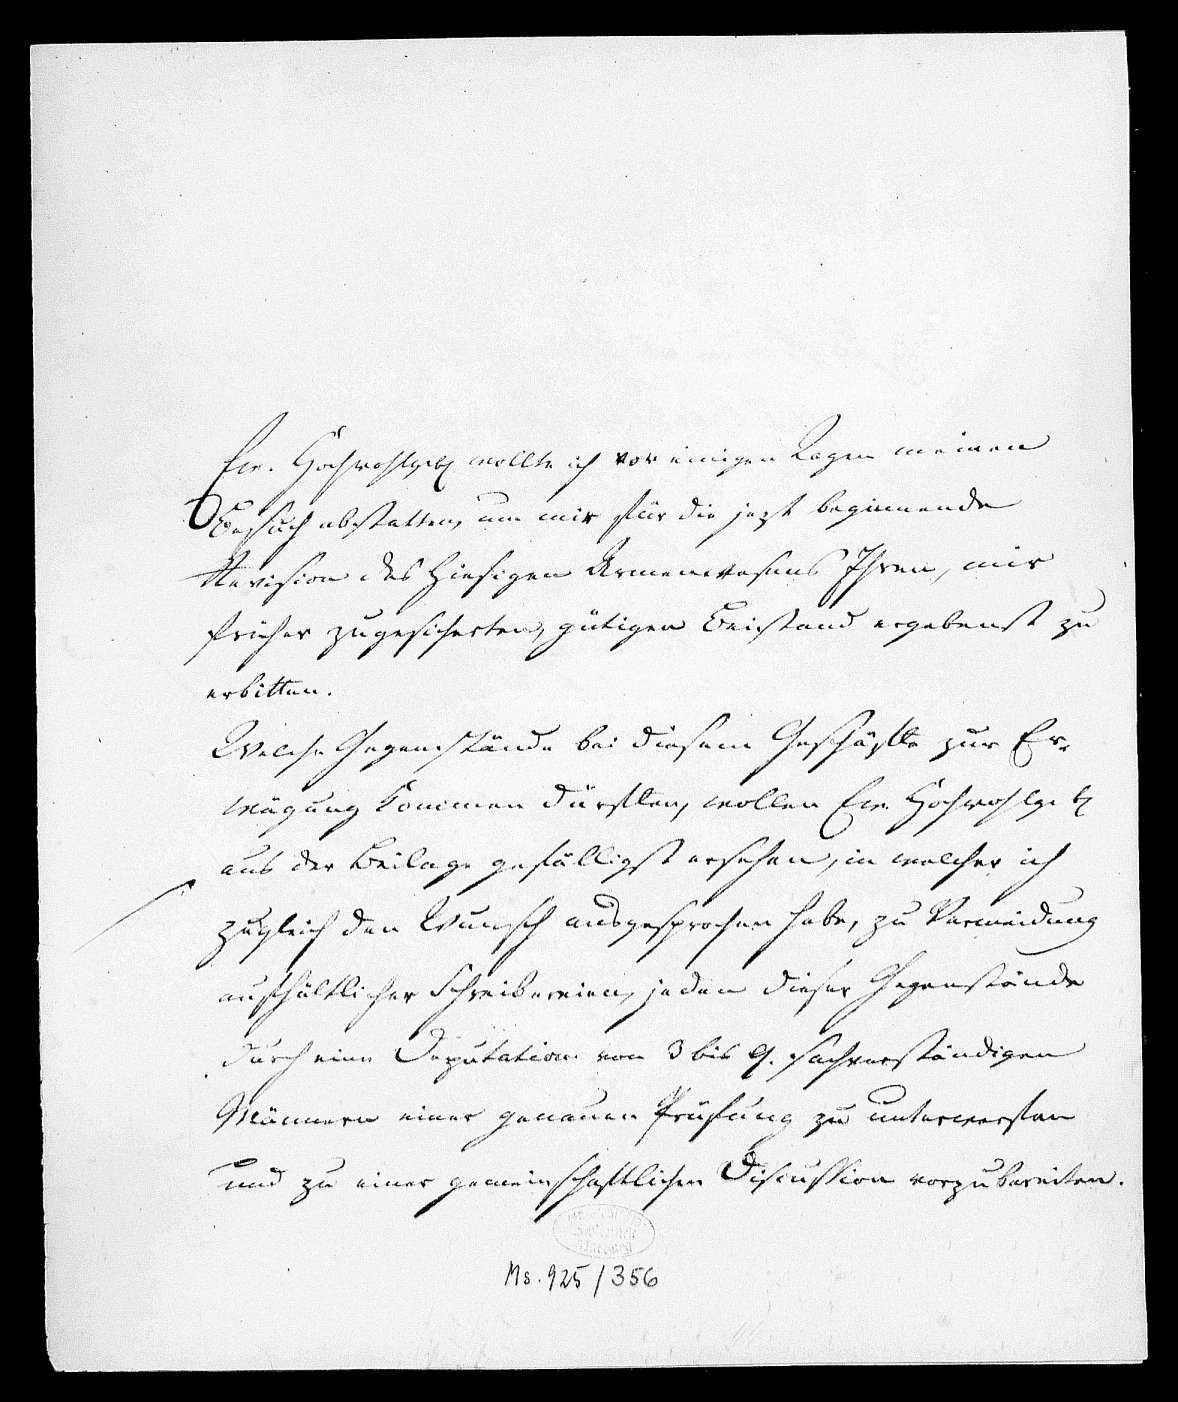 Ew. Hochwohlgeb wollte ich vor einigen Tagen meinen
Besuch abstatten, um mir für die jezt beginnende
Revision des hiesigen Armenwesens Ihren, mir
früher zugesicherten, gütigen Beistand ergebenst zu
erbitten.
Welche Gegenstände bei diesem Geschäfte zur Er-
wägung kommen dürften, wollen Ew. Hochwohlgeb
aus der Beilage gefälligst ersehen, in welcher ich
zugleich den Wunsch ausgesprochen habe, zu Vermeidung
aufhältlicher Schreibereien, jeden dieser Gegenstände
durch eine Deputation von 3 bis 4. sachverständigen
Männern einer genauen Prüfung zu unterwerfen
und zu einer gemeinschaftlichen Discussion vorzubereiten.
Ms. 925/356